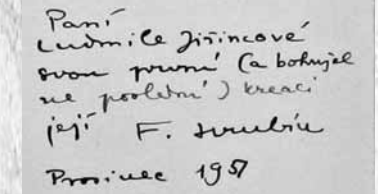 Paní
Ludmile Jiřincové
svou první (a bohužel
ne poslední) kreaci
její F. Hrubín
Prosinec